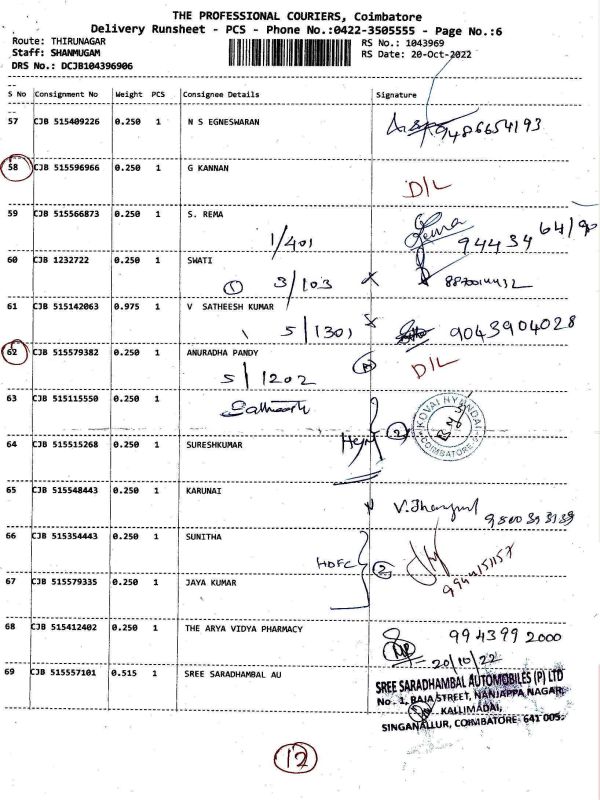 THE PROFESSIONAL COURIERS, Coimbatore
Delivery Runsheet - PCS - Phone No.:0422-3505555 - Page No.:6
Route: THIRUNAGAR RS No.: 1043969
Staff: SHANMUGAM RS Date: 20-Oct-2022
DRS No.: DCJB104396906
S No Consignment No Weight PCS Consignee Details Signature
57 CJB 515409226 0.250 1 N S EGNESWARAN 9486654193
58 CJB 515596966 0.250 1 G KANNAN D/L
59 CJB 515566873 0.250 1 S. REMA Rema 94434 64190
1/401
60 CJB 1232722 0.250 1 SWATI
1 3/103 x 8870014432
61 CJB 515142063 0.975 1 V SATHEESH KUMAR
5/1301 x 9043904028
62 CJB 515579382 0.250 1 ANURADHA PANDY D/L
5/1202
63 CJB 515115550 0.250 1 Satheesh
KOVAI HYUNDAI
COIMBATORE
64 CJB 515515268 0.250 1 SURESHKUMAR 2
65 CJB 515548443 0.250 1 KARUNAI
66 CJB 515354443 0.250 1 SUNITHA
HDFC 2
67 CJB 515579335 0.250 1 JAYA KUMAR
68 CJB 515412402 0.250 1 THE ARYA VIDYA PHARMACY 994399 2000
20/10/22
69 CJB 515557101 0.515 1 SREE SARADHAMBAL AU
SREE SARADHAMBAL AUTOMOBILES (P) LTD
No. 1, RAJA STREET, NANJAPPA NAGAR,
KALLIMADAI,
SINGANALLUR, COIMBATORE- 641 005.
12